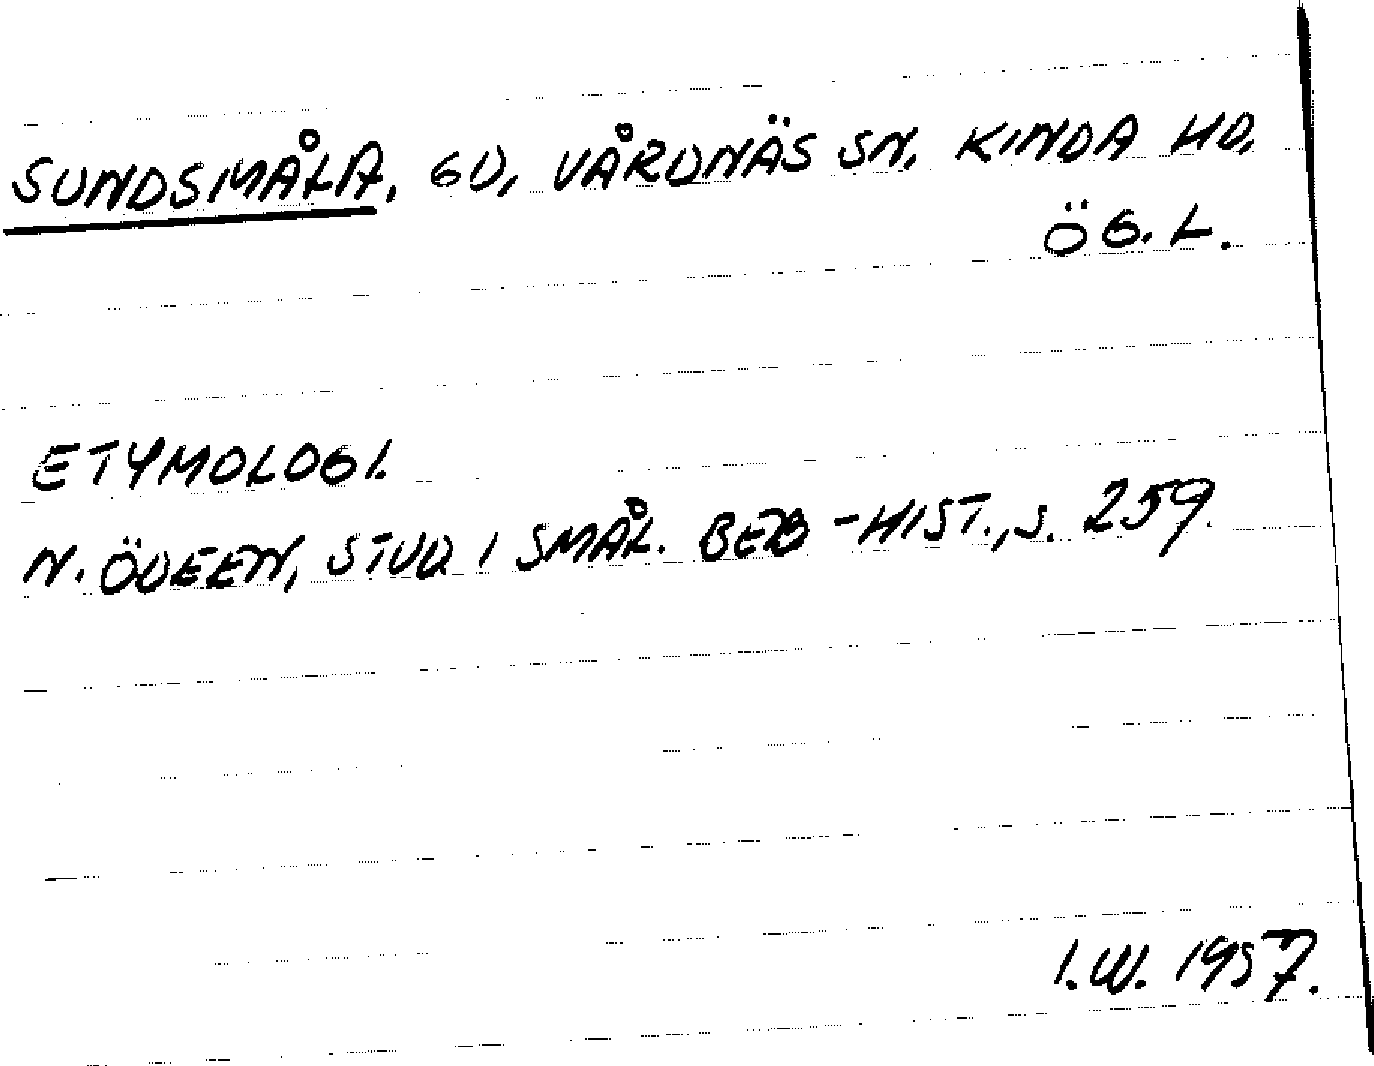 SUNDSMÅLA, GD, VÅRDNÄS SN, KINDA HD,
ÖG. L.
ETYMOLOGI.
N. ÖDEEN, STUD I SMÅL. BEB-HIST., S. 259.
I.W. 1957.